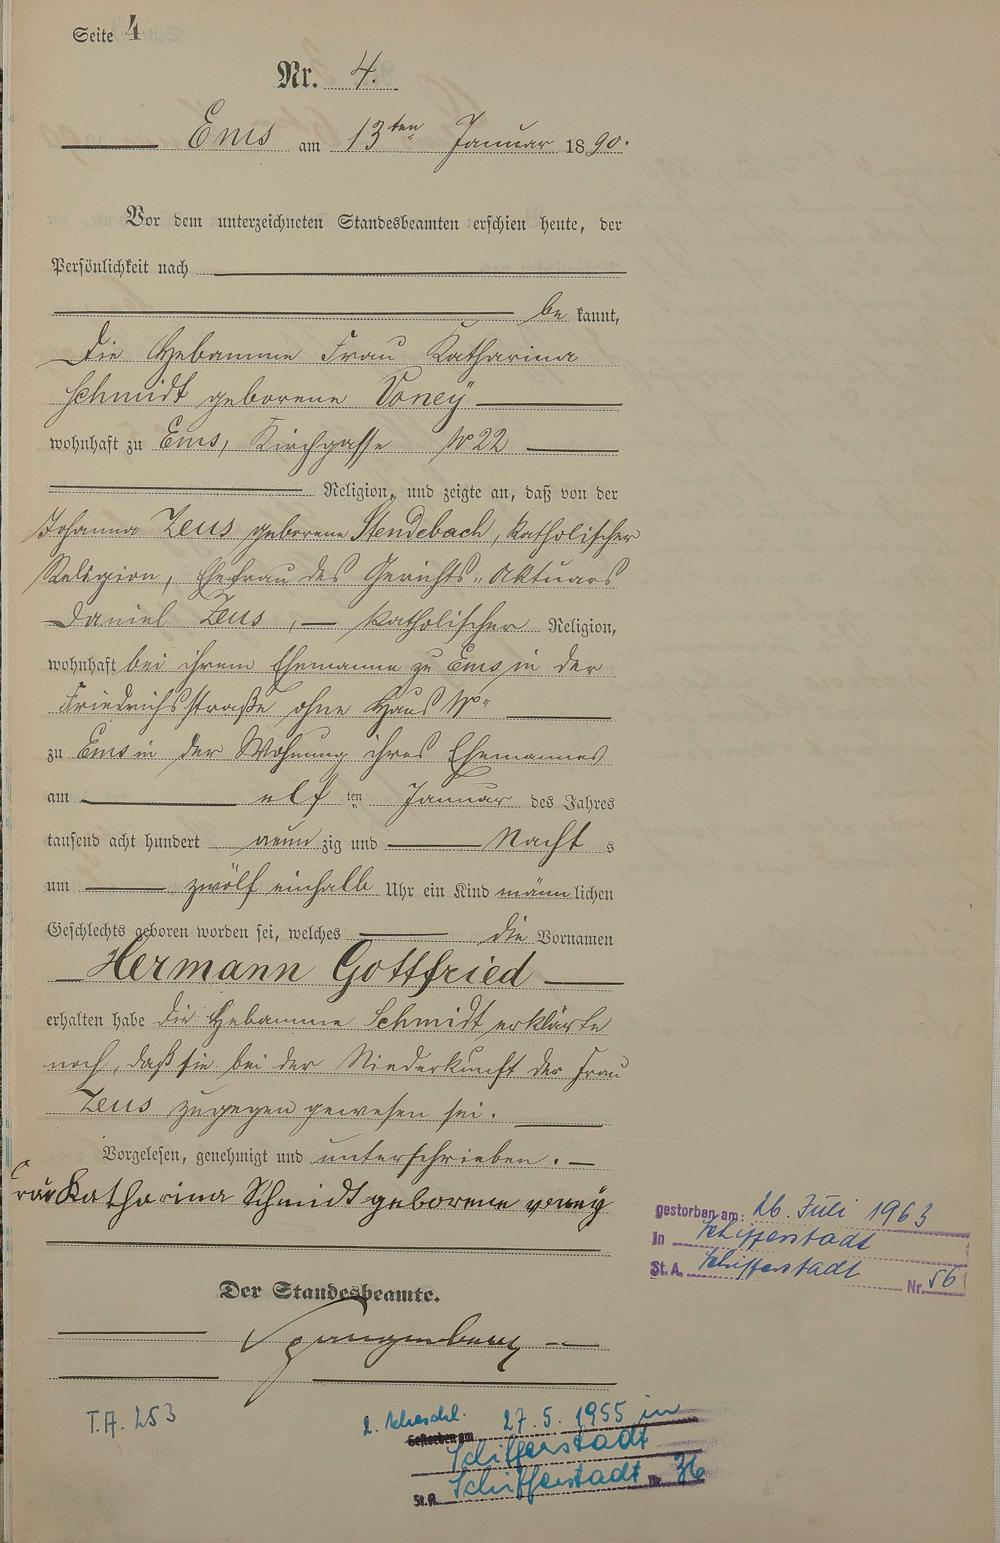 Seite 4
Nr. 4.
Ems am 13ten Januar 1890.
Vor dem unterzeichneten Standesbeamten erschien heute, der
Persönlichkeit nach
bekannt,
die Hebamme Frau Katharina
Schmidt geborene Voney
wohnhaft zu Ems, Kirchgasse No 22
Religion, und zeigte an, daß von der
Johanna Zeus geborene Stendebach, katholischer
Religion, Ehefrau des Gerichts-Aktuars
Daniel Zeus, katholischer Religion,
wohnhaft bei ihrem Ehemanne zu Ems in der
Friedrichsstraße ohne Haus No
zu Ems in der Wohnung ihres Ehemannes
am elften Januar des Jahres
tausend acht hundert neunzig und Nachts
um zwölf einhalb Uhr ein Kind männlichen
Geschlechts geboren worden sei, welches die Vornamen
Hermann Gottfried
erhalten habe die Hebamme Schmidt erklärte
noch, daß sie bei der Niederkunft der Frau
Zeus zugegen gewesen sei.
Vorgelesen, genehmigt und unterschrieben.
Frau Katharina Schmidt geborene
gestorben am: 26. Juli 1963
In Schifferstadt
St.A. Schifferstadt Nr. 56
Der Standesbeamte.
Spangenberg
T.A. 253
2. 27.5.1955 in
Gestorben am
Schifferstadt
St.A. Schifferstadt Nr. 36